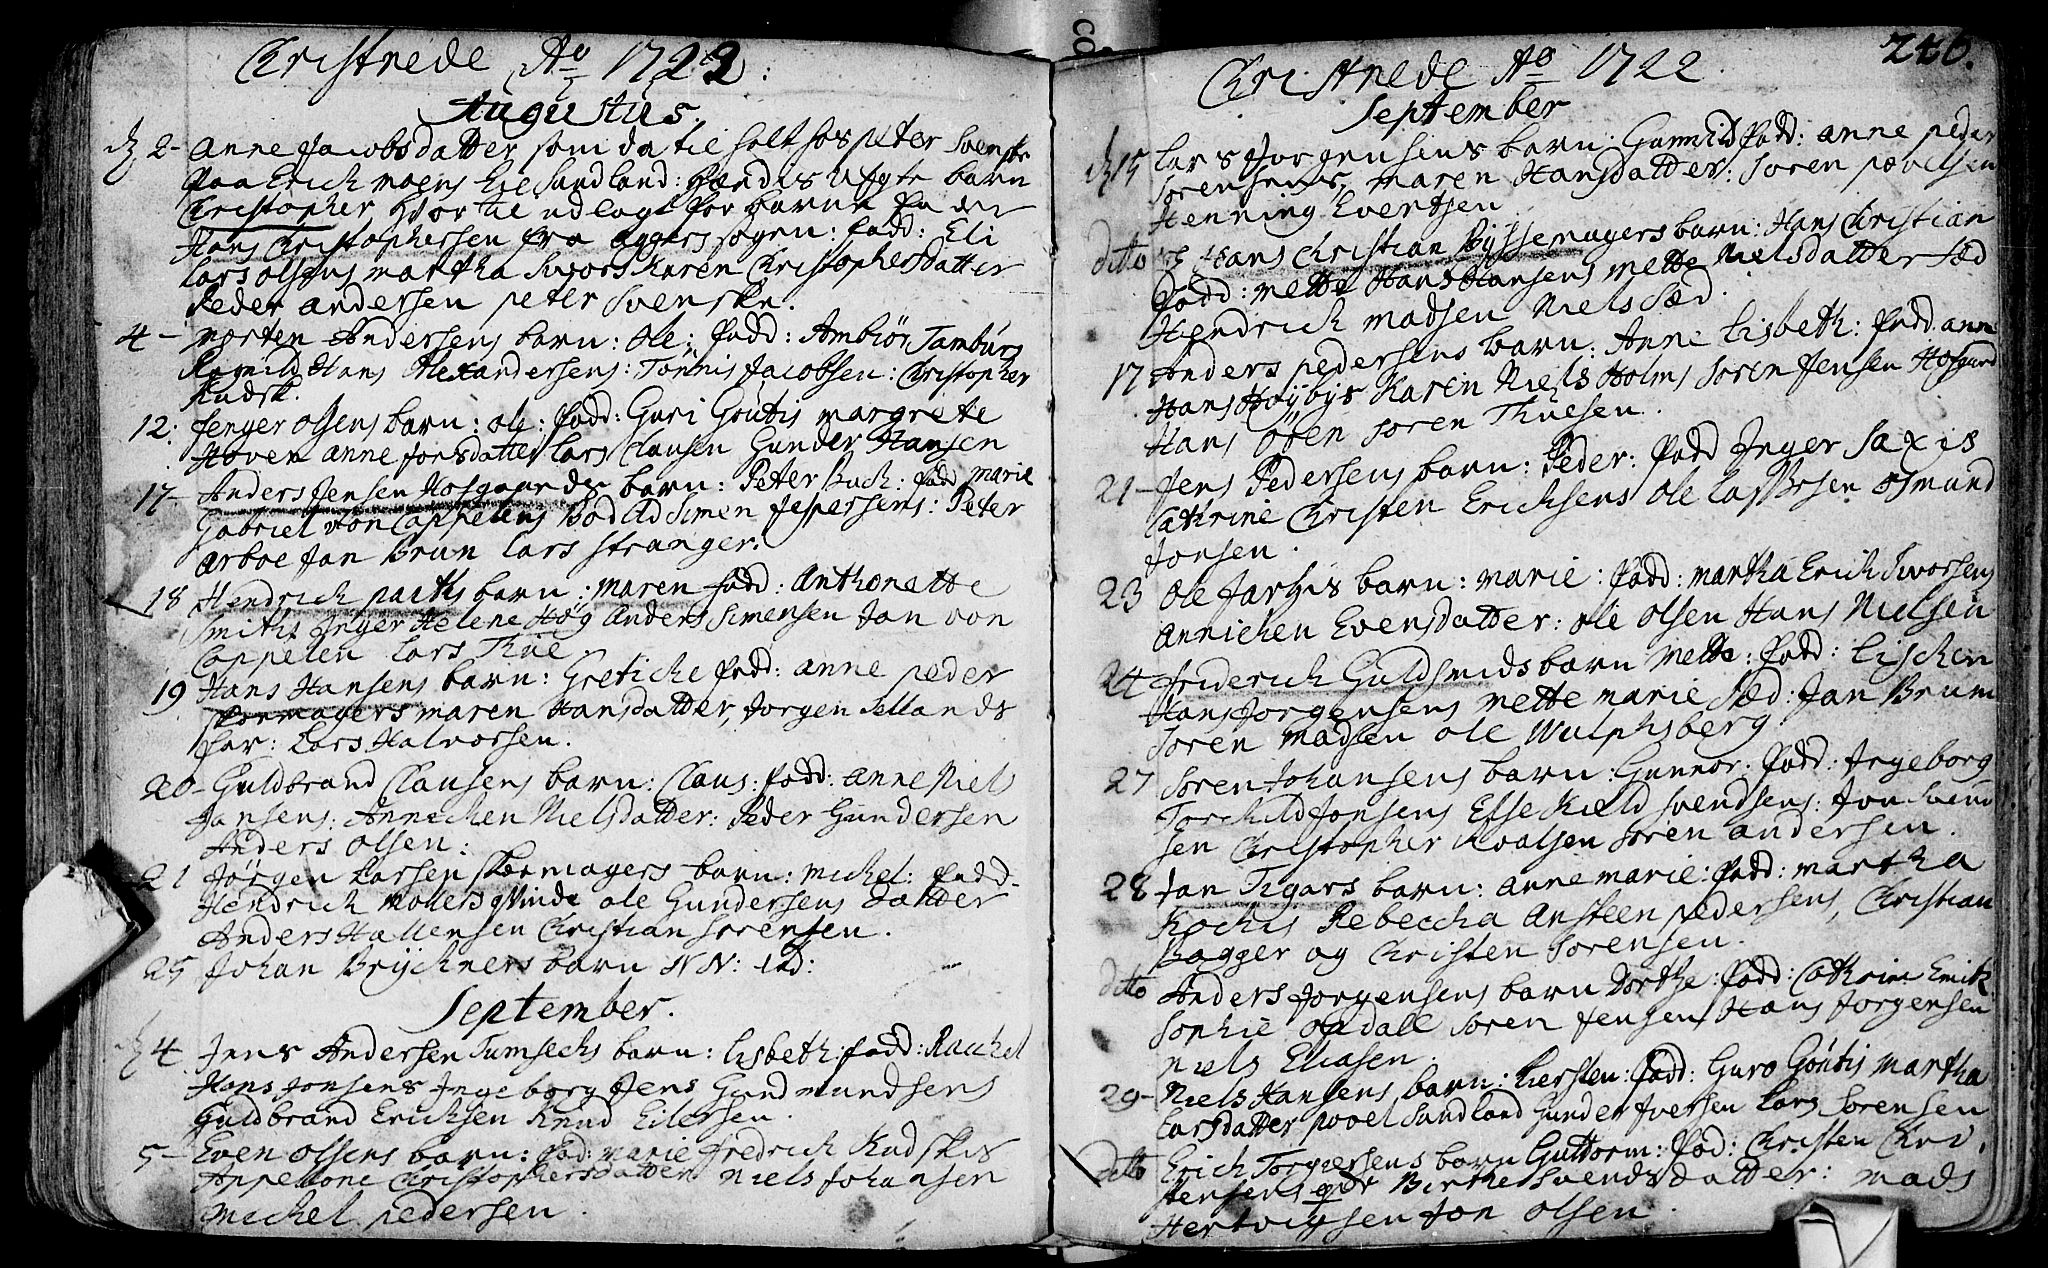 Christnede Ao 1722:
Augustus.
d 2- Anne Jacobsdatter som da til holt hos peter Svenske
paa Erick moens Eie Sandland: hændis Uegte barn
Christopher hvor til udlagt for barne fader
Hans Christophersen fra aggers sogen: fadd: Eli
Lars olsens martha Sivors Karen Christophersdatter
Peder andersen peter Svenske.
4- Morten Andersens barn: Ole: fadd: Ambiør Tamburs
Ragnild Hans Alexandersens: Tönnis Jacobsen: Christopher
Kudsk.
12: Jenger olsens barn: ole: fadd: Guri Goutis margrete
Hoven anne jonsdatter Lars Clausen Gunder Hansen
17- Anders Jensen Hofgaards barn: Peter Buch: fadd marie
Gabriel von Cappelens Bodild Simen Jespersens: Peter
Arboe Jan Brun Lars Stranger.
18 Hendrick parks barn: maren fadd: Anthonette
Smiths Inger Helene Høg Anders Simensen Jan von
Cappelen Lars Thue.
19 Hans Hansens barn: Greticke fadd: anne peder
skoemagers maren Hansdatter, Jorgen Sellands
far: Lars Halvorsen.
20- Guldbrand Clausens barn: Claus: fadd: anne Niels
Jansens: Annichen Nielsdatter: Peder Gundersen
Anders olsen:
21 Jørgen Larsen skoemagers barn: Michel: fadd-
Hendrick molers qvinde ole Gundersens datter
Anders Hallensen Christian Sorensen.
25 Johan Bryckners barn NN: ind:
September.
d 4 Jens Andersen Tumsechs barn: Lisbeth: fadd: Rachel
Hans jonsens Ingeborg Jens Gundmundsens
Guldbrand Ericksen Knud Eilersen.
5- Even Olsens barn: fad: marie fredrick Kudskis
Anpellone Christophersdatter Niels Johansen
Michel pedersen.
246.
Christnede Ao 1722
September
d 15 Lars Jorgensens barn: Gunnild fadd: anne peder
Sorensens, maren Hansdatter: Soren povelsen
Henning Evertsen
dito Hans Christian Bysse magers barn: Hans Christian
fadd: Mette Hans Hansens mette Nielsdatter Sæd
Hendrick madsen Niels Sæd.
17 Anders pedersens barn: Anne Lisbeth: fadd. anne
Hans Høybys Karen Niels Holms Soren Jensen Hofgard
Hans ören Soren Thuesen.
21- Jens Pedersens barn: Peder: fadd Inger Saxis
Cathrine Christen Ericksens ole Lassesen osmund
Jonsen.
23 Ole Jarhis barn: marie: fadd: martha Erick Sivorsens
Annichen Evensdatter: ole olsen Hans Nielsen
24 Friderich Guldsmids barn Mette: fadd: Lischen
Hans Jorgensens Mette marie Sæd: Jan Brun
Soren Madsen ole Wulphsberg
27 Soren Johansens barn: Gunnor. fadd: Ingeborg
Torchild Jonsens Esse Kield Svendsens: Jon Svend
sen Christopher Roalsen Soren andersen.
28 Jan Tigars barn: anne marie: fadd: martha
Kochis Rebeccha Ansteen pedersens, Christian
Bagger og Christen Sorensen.
dito Anders Jorgensens barn Dorthe: fadd: Cathrine Emik
Sophie opdall Soren Jensen Hans Jorgensen
Niels Eliasen.
29- Niels Hansens barn: Kiersten: fadd: Guro Goutis martha
Larsdatter povel Sandland Gunder Iversen Lars Sorensen
dito Erick Torgiersens barn Guttorm: fad: Christen Chri,
stensens qde Birthe Svendsdatter: mads
Hertvigsen Jon olsen.